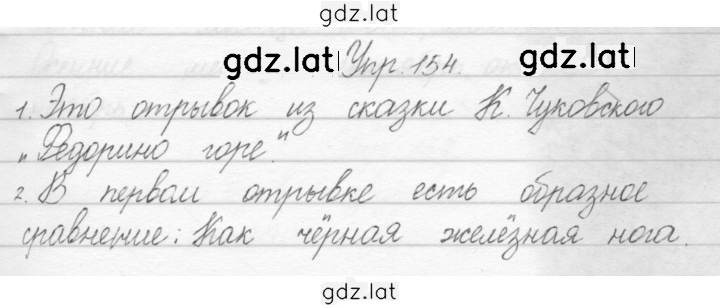 gdz.lat
gdz.lat Упр. 154. gdz.lat
1. Это отрывок из сказки К. Чуковского
„Федорино горе."
2. В первом отрывке есть образное
сравнение: Как чёрная железная нога.
gdz.lat